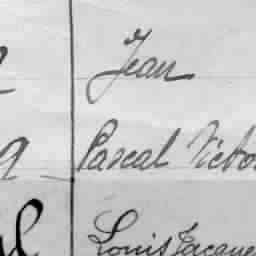 Jean
Pascal Victo
Louis Jacque